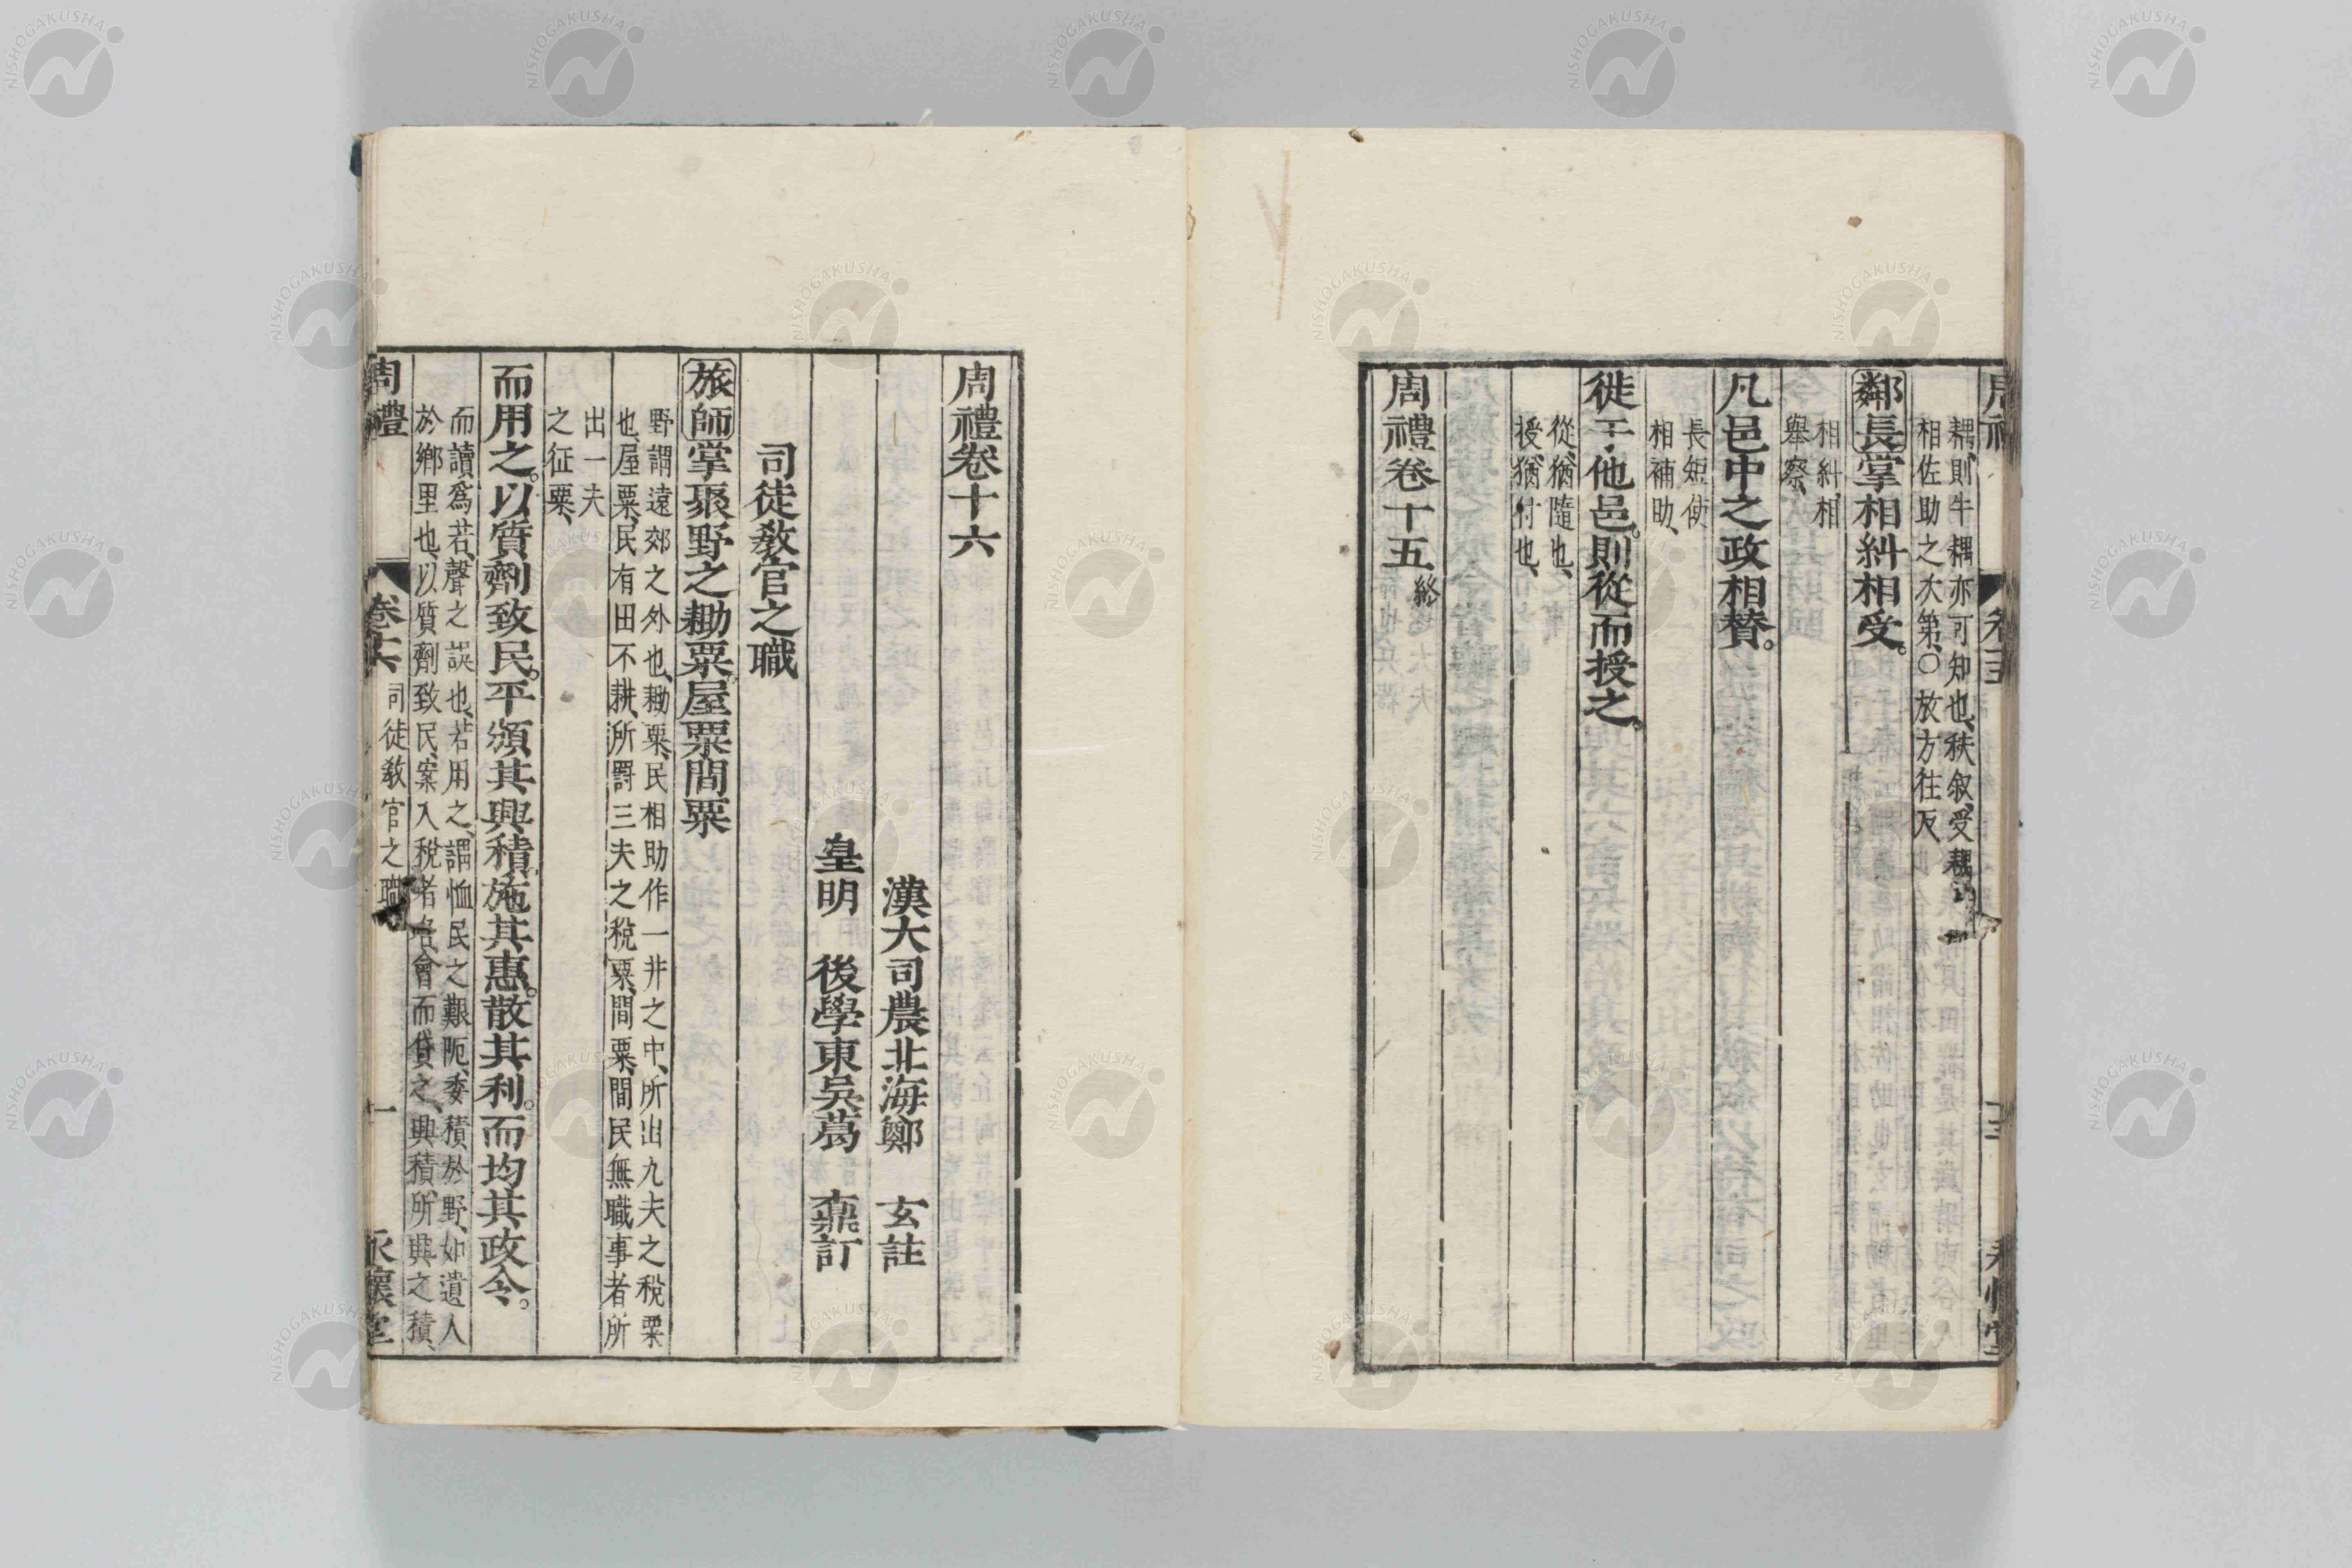 耦、則牛耦亦可知也、秩叙、受耦
相佐助之次第、○放方往反
鄰長掌相糾相受。
相糾、相
舉察、
凡邑中之政相贊。
長短使
相補助、
徙于他邑。則從而授之。
從、猶隨也、
授、猶付也、
周禮卷十五終
周禮卷十六
漢大司農北海鄭 玄註
皇明 後學東吳葛 鼒訂
司徒敎官之職
旅師掌聚野之耡粟屋粟間粟
野謂遠郊之外也、耡粟、民相助作一井之中、所出九夫之稅粟
也、屋粟、民有田不耕、所罰三夫之稅粟、間粟、間民無職事者所
出一夫
之征粟、
而用之。以質劑致民。平頒其興積。施其惠。散其利。而均其政令。
而讀爲若、聲之誤也、若用之、謂恤民之艱阨、委積於野、如遺人
於鄉里也、以質劑致民、案入稅者名、會而貸之、興積、所興之積、
周禮 卷十六 司徒敎官之職 一 永懷堂